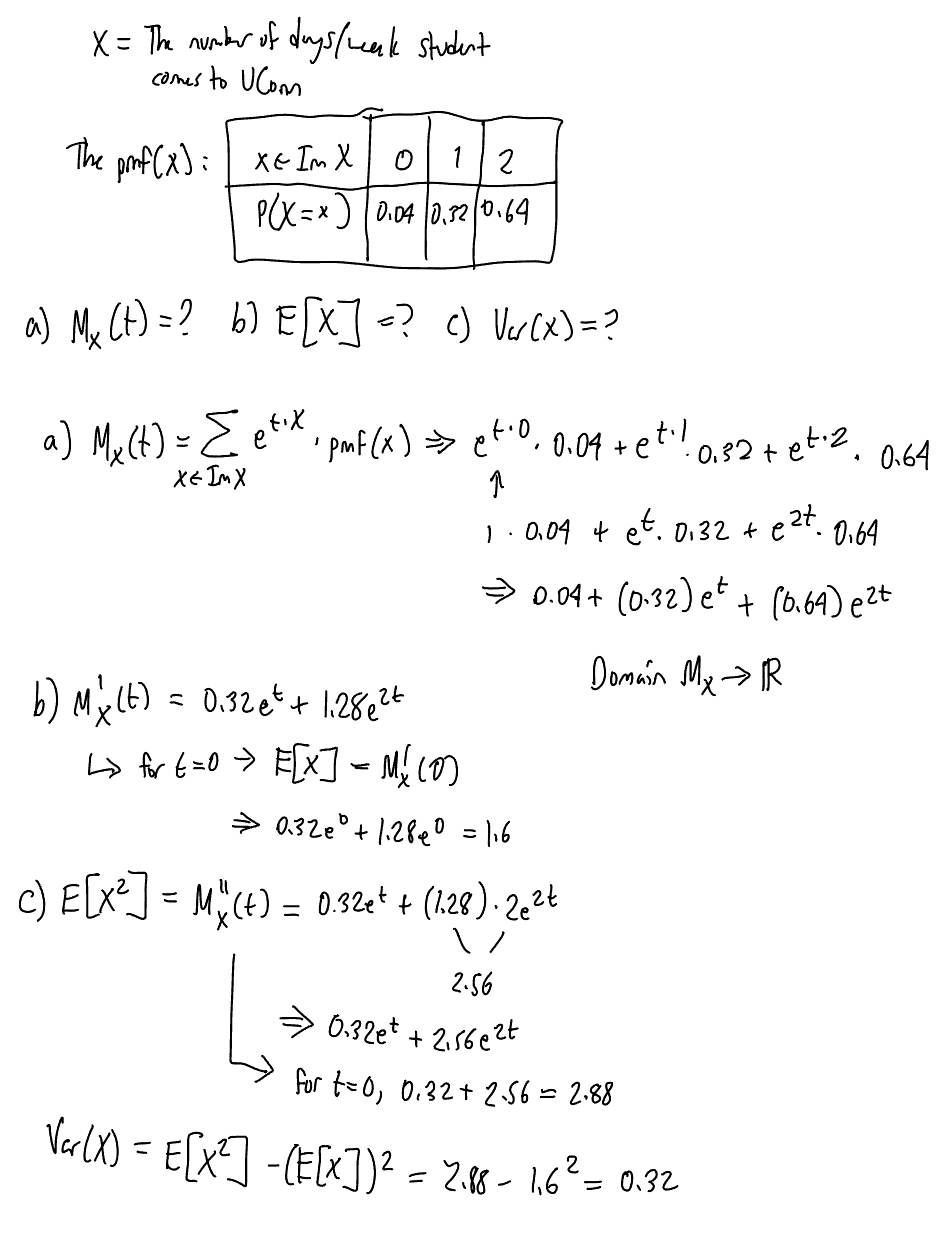 X = The number of days/week student
comes to UConn
The pmf(X):
x ∈ Im X | 0 | 1 | 2
P(X=x) | 0.04 | 0.32 | 0.64
a) Mₓ(t) = ? b) E[X] = ? c) Var(X) = ?
a) Mₓ(t) = Σ e^{t·X} · pmf(x) ⇒ e^{t·0} · 0.04 + e^{t·1} · 0.32 + e^{t·2} · 0.64
x ∈ Im X
↑
1 · 0.04 + e^t · 0.32 + e^{2t} · 0.64
⇒ 0.04 + (0.32)e^t + (0.64)e^{2t}
Domain Mₓ → ℝ
b) Mₓ'(t) = 0.32e^t + 1.28e^{2t}
↳ for t=0 → E[X] = Mₓ'(0)
⇒ 0.32e^0 + 1.28e^0 = 1.6
c) E[X²] = Mₓ''(t) = 0.32e^t + (1.28) · 2e^{2t}
2.56
⇒ 0.32e^t + 2.56e^{2t}
for t=0, 0.32 + 2.56 = 2.88
Var(X) = E[X²] - (E[X])² = 2.88 - 1.6² = 0.32